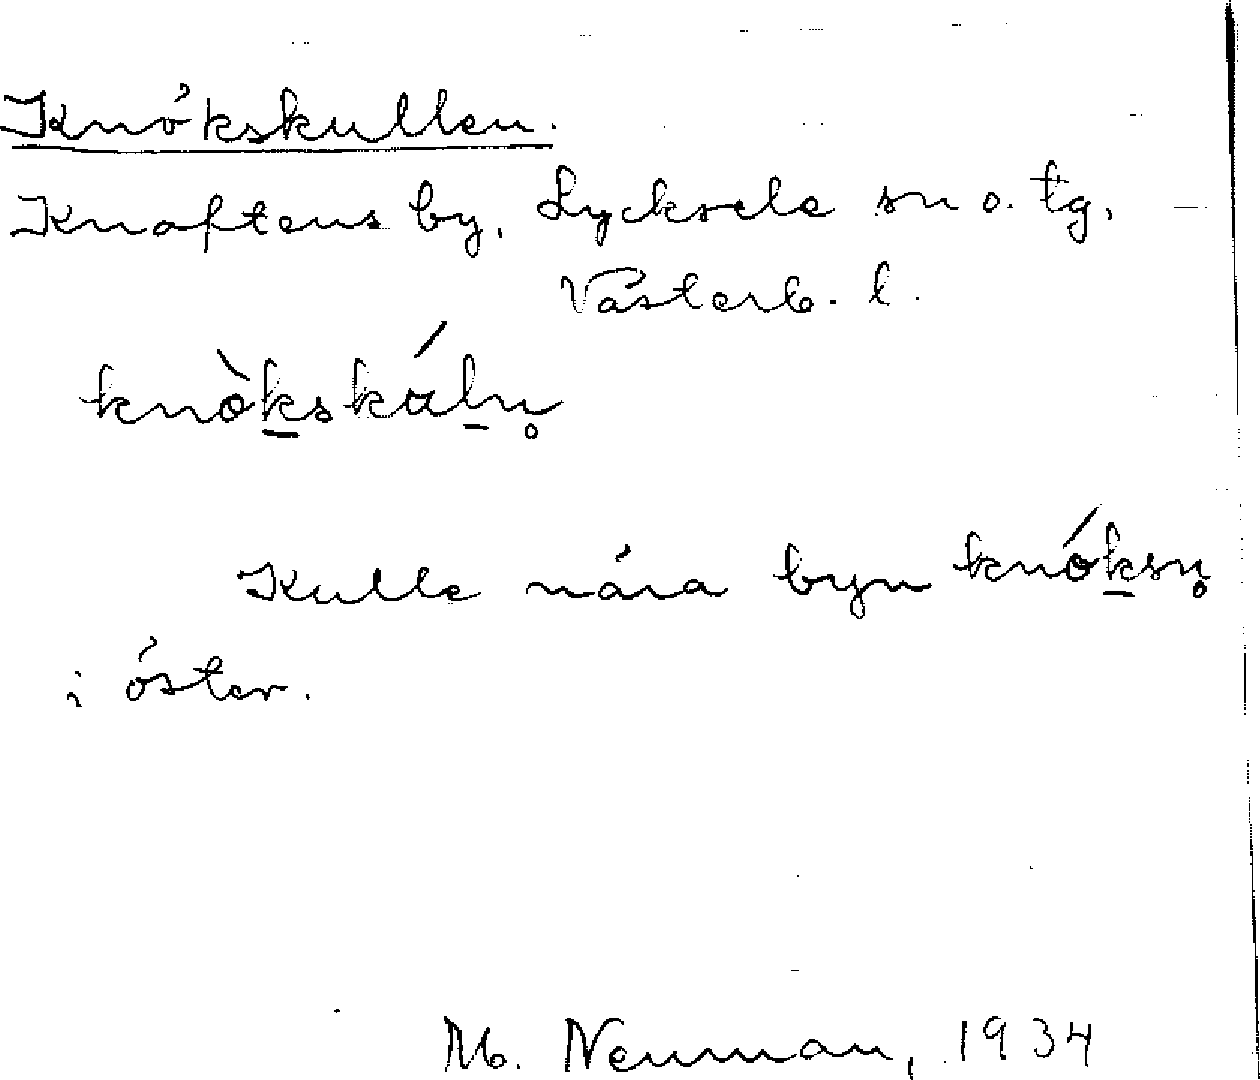 Knökskullen.
Knaftens by, Lycksele sn o. tg,
Västerb. l.
knò̱kskúḻn̥
Kulle nära byn knó̱ksn̥
i öster.
M. Neuman, 1934